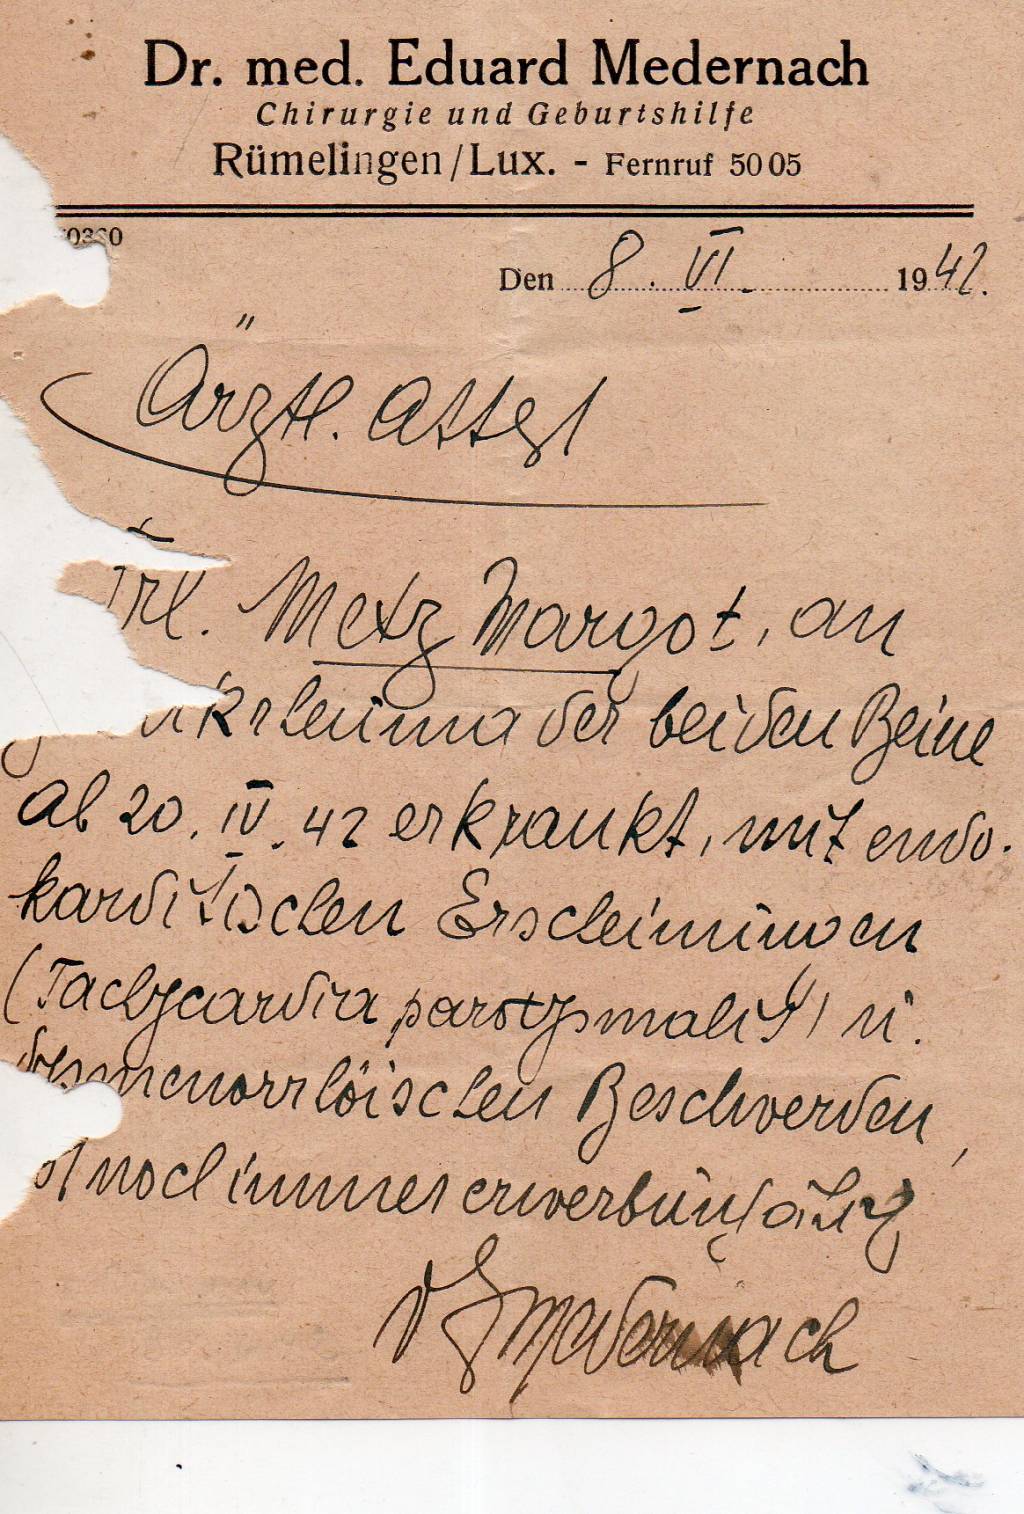 Dr. med. Eduard Medernach
Chirurgie und Geburtshilfe
Rümelingen/Lux. - Fernruf 5005
Den 8. VI. 1942.
Ärztl. Attest
Frl. Metz Margot, an
der beiden Beine
ab 20. IV. 42 erkrankt, mit endo-
karditischen Erscheinungen
(Tachycardia paroxysmalis) u.
dysmenorrhöischen Beschwerden,
ist noch immer erwerbunfähig
Medernach